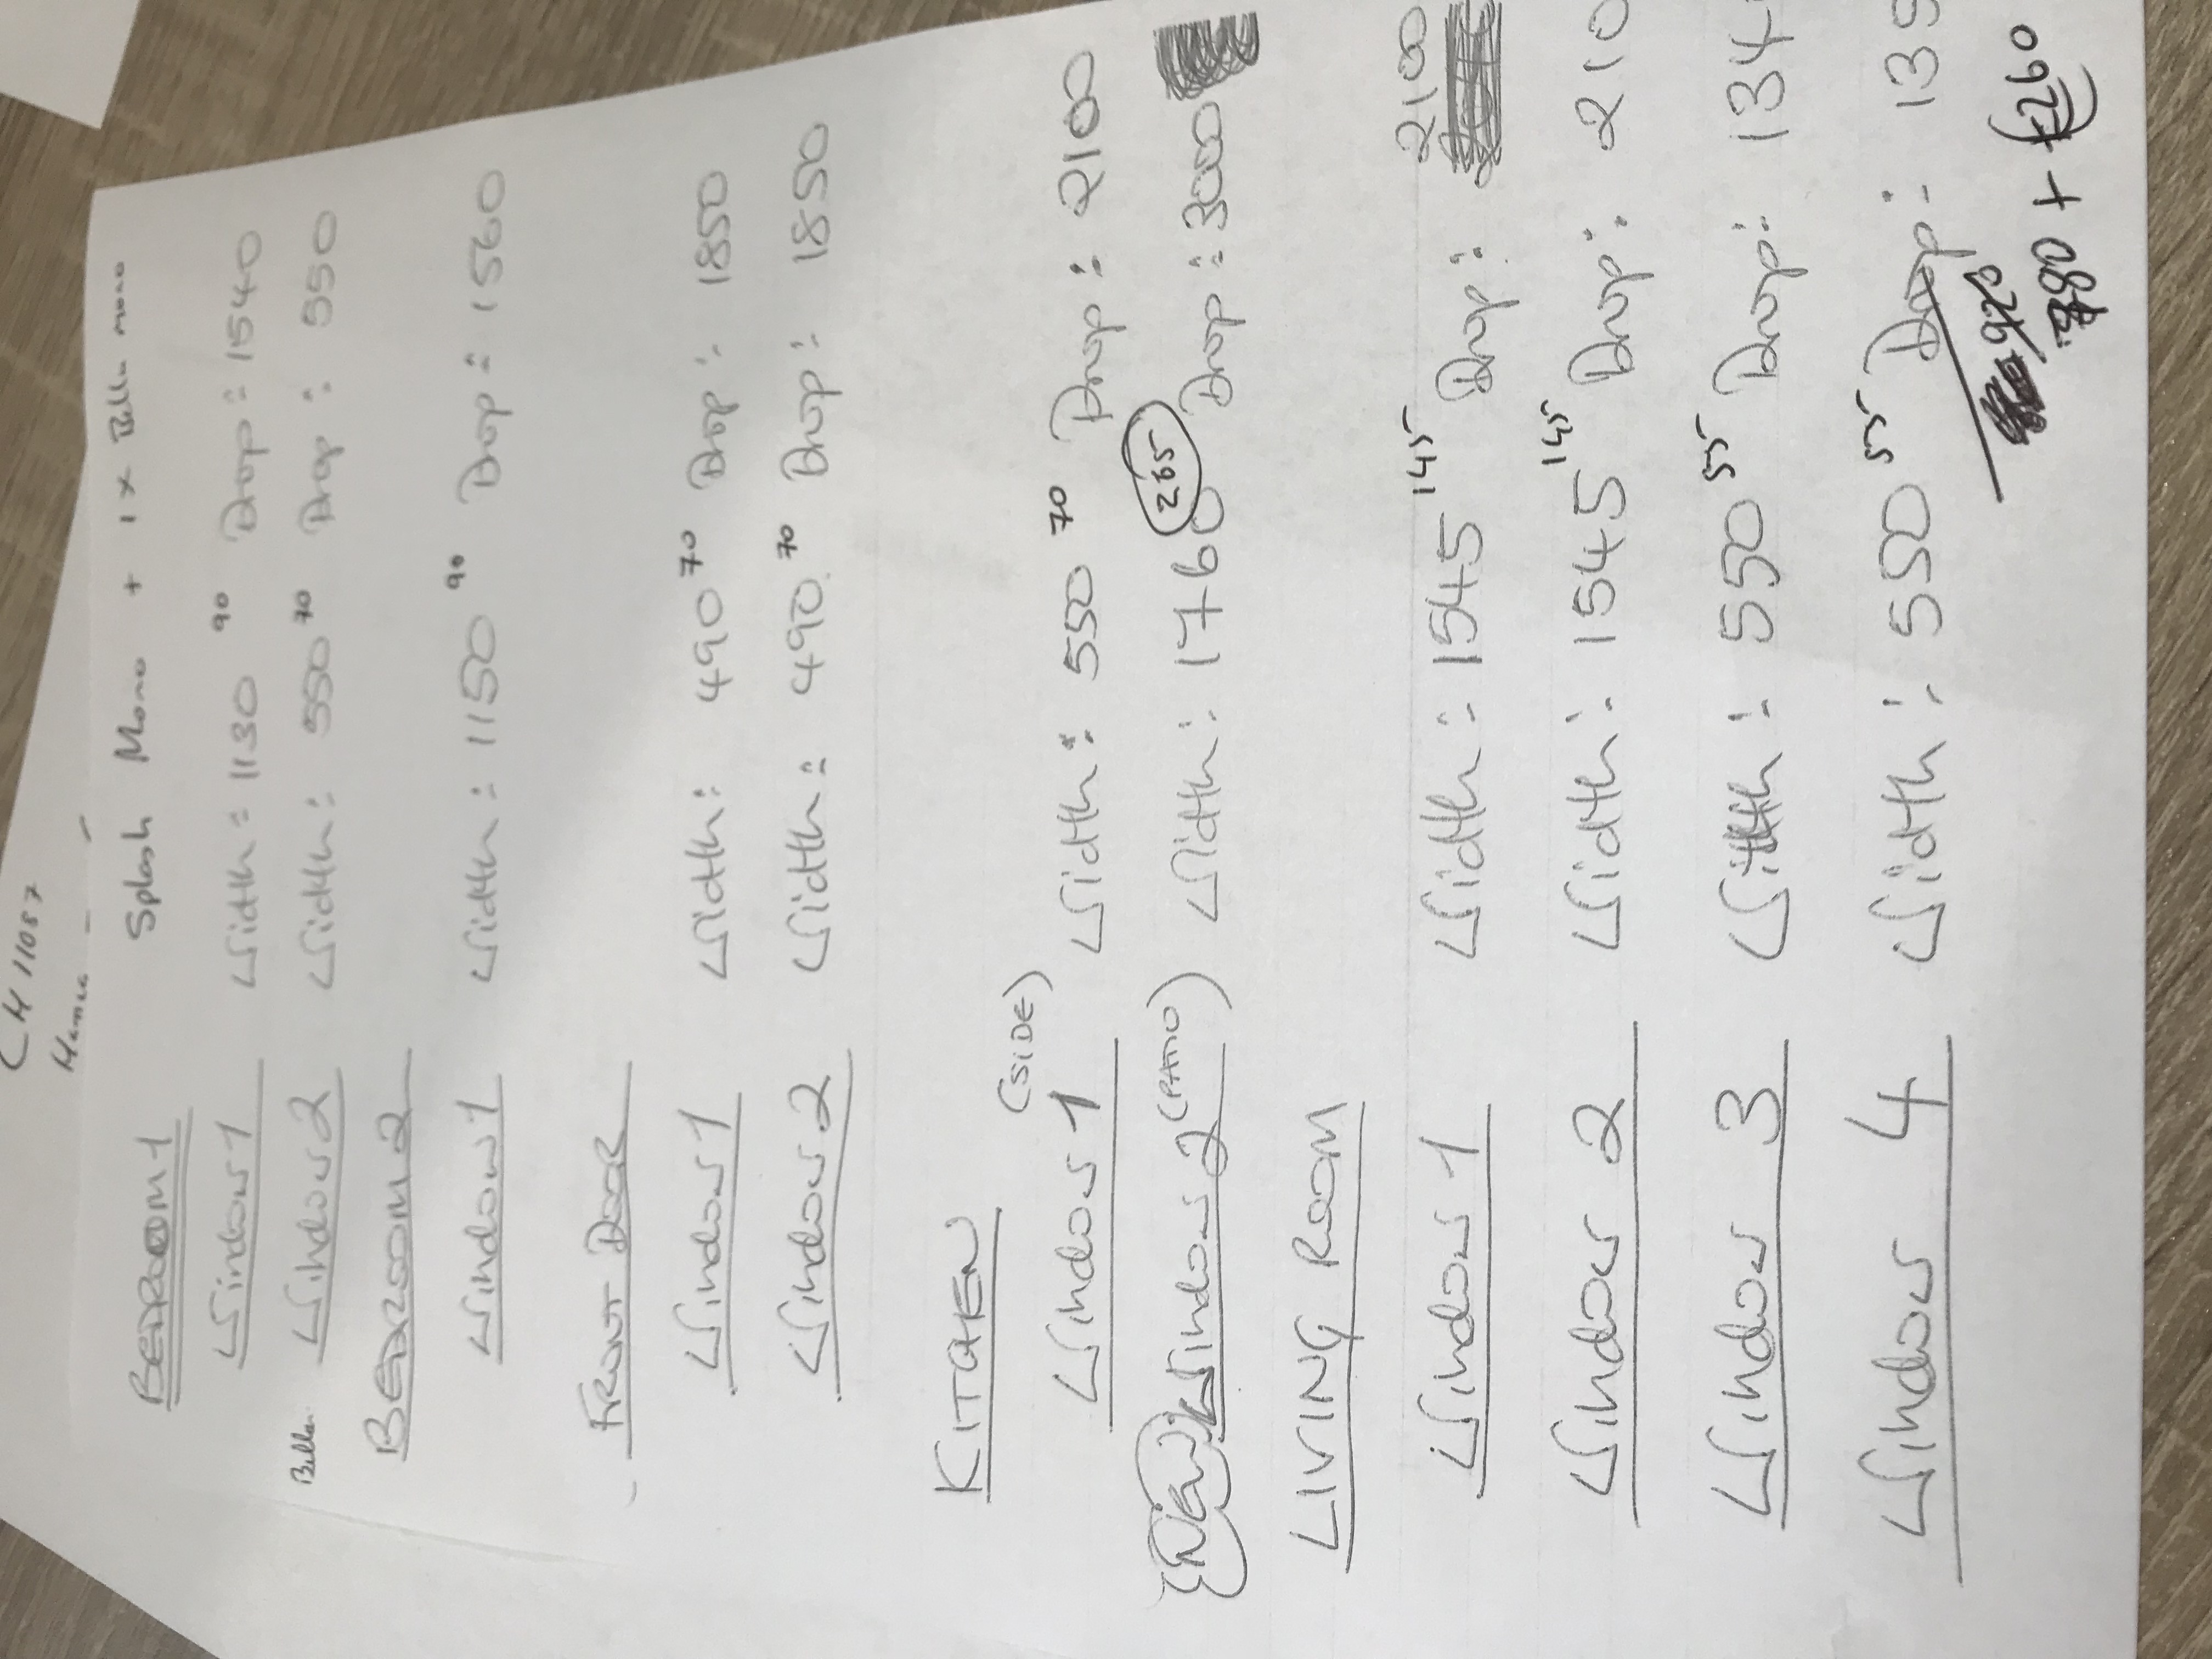 CH 11057
Splash Mono + 1 x Bella mono
BEDROOM 1
Window 1 Width: 1130 90 Drop: 1540
Bella Window 2 Width: 550 70 Drop: 550
BEDROOM 2
Window 1 Width: 1150 90 Drop: 1560
FRONT DOOR
Window 1 Width: 490 70 Drop: 1850
Window 2 Width: 490 70 Drop: 1850
KITCHEN
(SIDE)
Window 1 Width: 550 70 Drop: 2100
Window 2 (PATIO) Width: 1760 265 Drop: 3000
LIVING ROOM
Window 1 Width: 1545 145 Drop: 2100
Window 2 Width: 1545 145 Drop: 210
Window 3 Width: 550 55 Drop: 134
Window 4 Width: 550 55 Drop: 135
+ 260